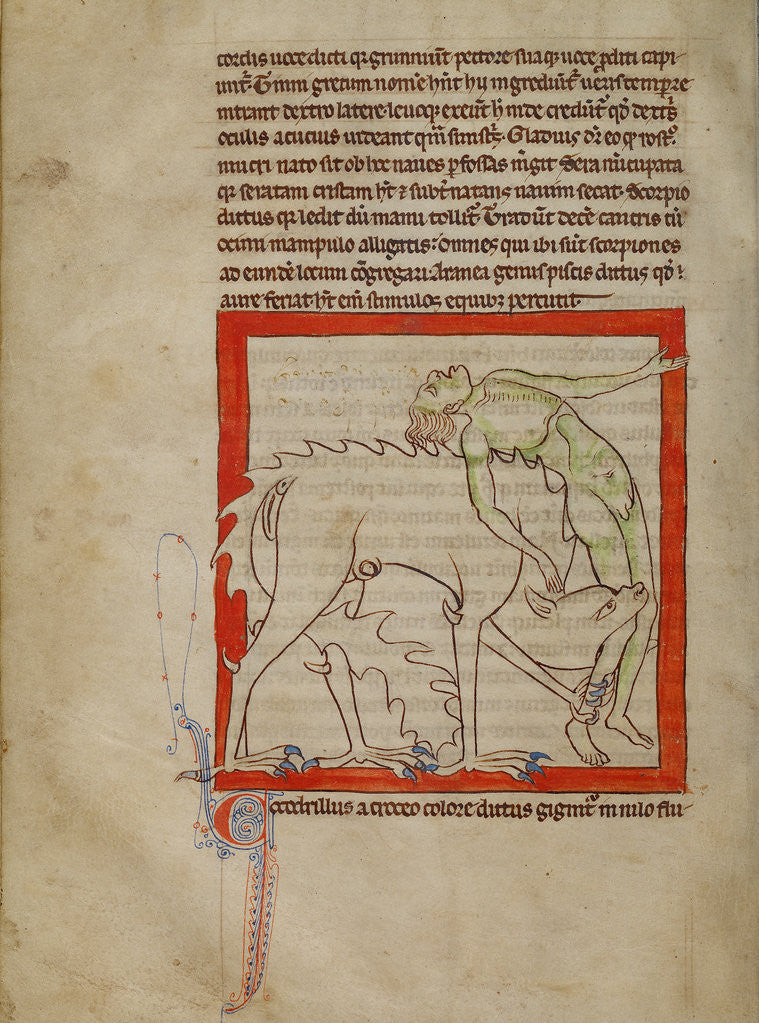 cordis uoce dicti qr grunniūt pectore sua q; uoce p̄diti capi
unt᷑. Tinni grecum nom̄e hn̄t hij ingrediūt᷑ ueris tempore
intrant dextro latere leuoq; exeūt h̄ inde credūt᷑ qd̄ dextris
oculis acucius uideant qm̄ sinistris. Gladius dr̄ eo qd̄ rostro
mucronato sit ob hoc naues pfossas m̄git Serra nūcupata
qr serratam cristam h̄t & subt᷑natans nauim secat. Scorpio
dictus qr ledit dū manu tollit᷑. Tradūt decē cancris cū
ocimi manipulo alligatis: omnes qui ibi sūt scorpiones
ad eundē locum cōgregari. Aranea genus piscis dictus qd̄
aure feriat h̄t eni᷑ stimulos equib; percutit
Cocodrillus a croceo colore dictus gignit᷑ in nilo flu-